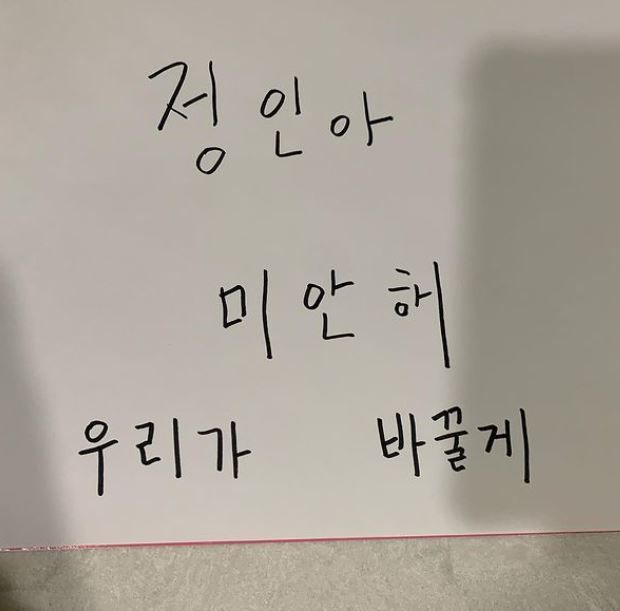 정인아
미안해
우리가 바꿀게